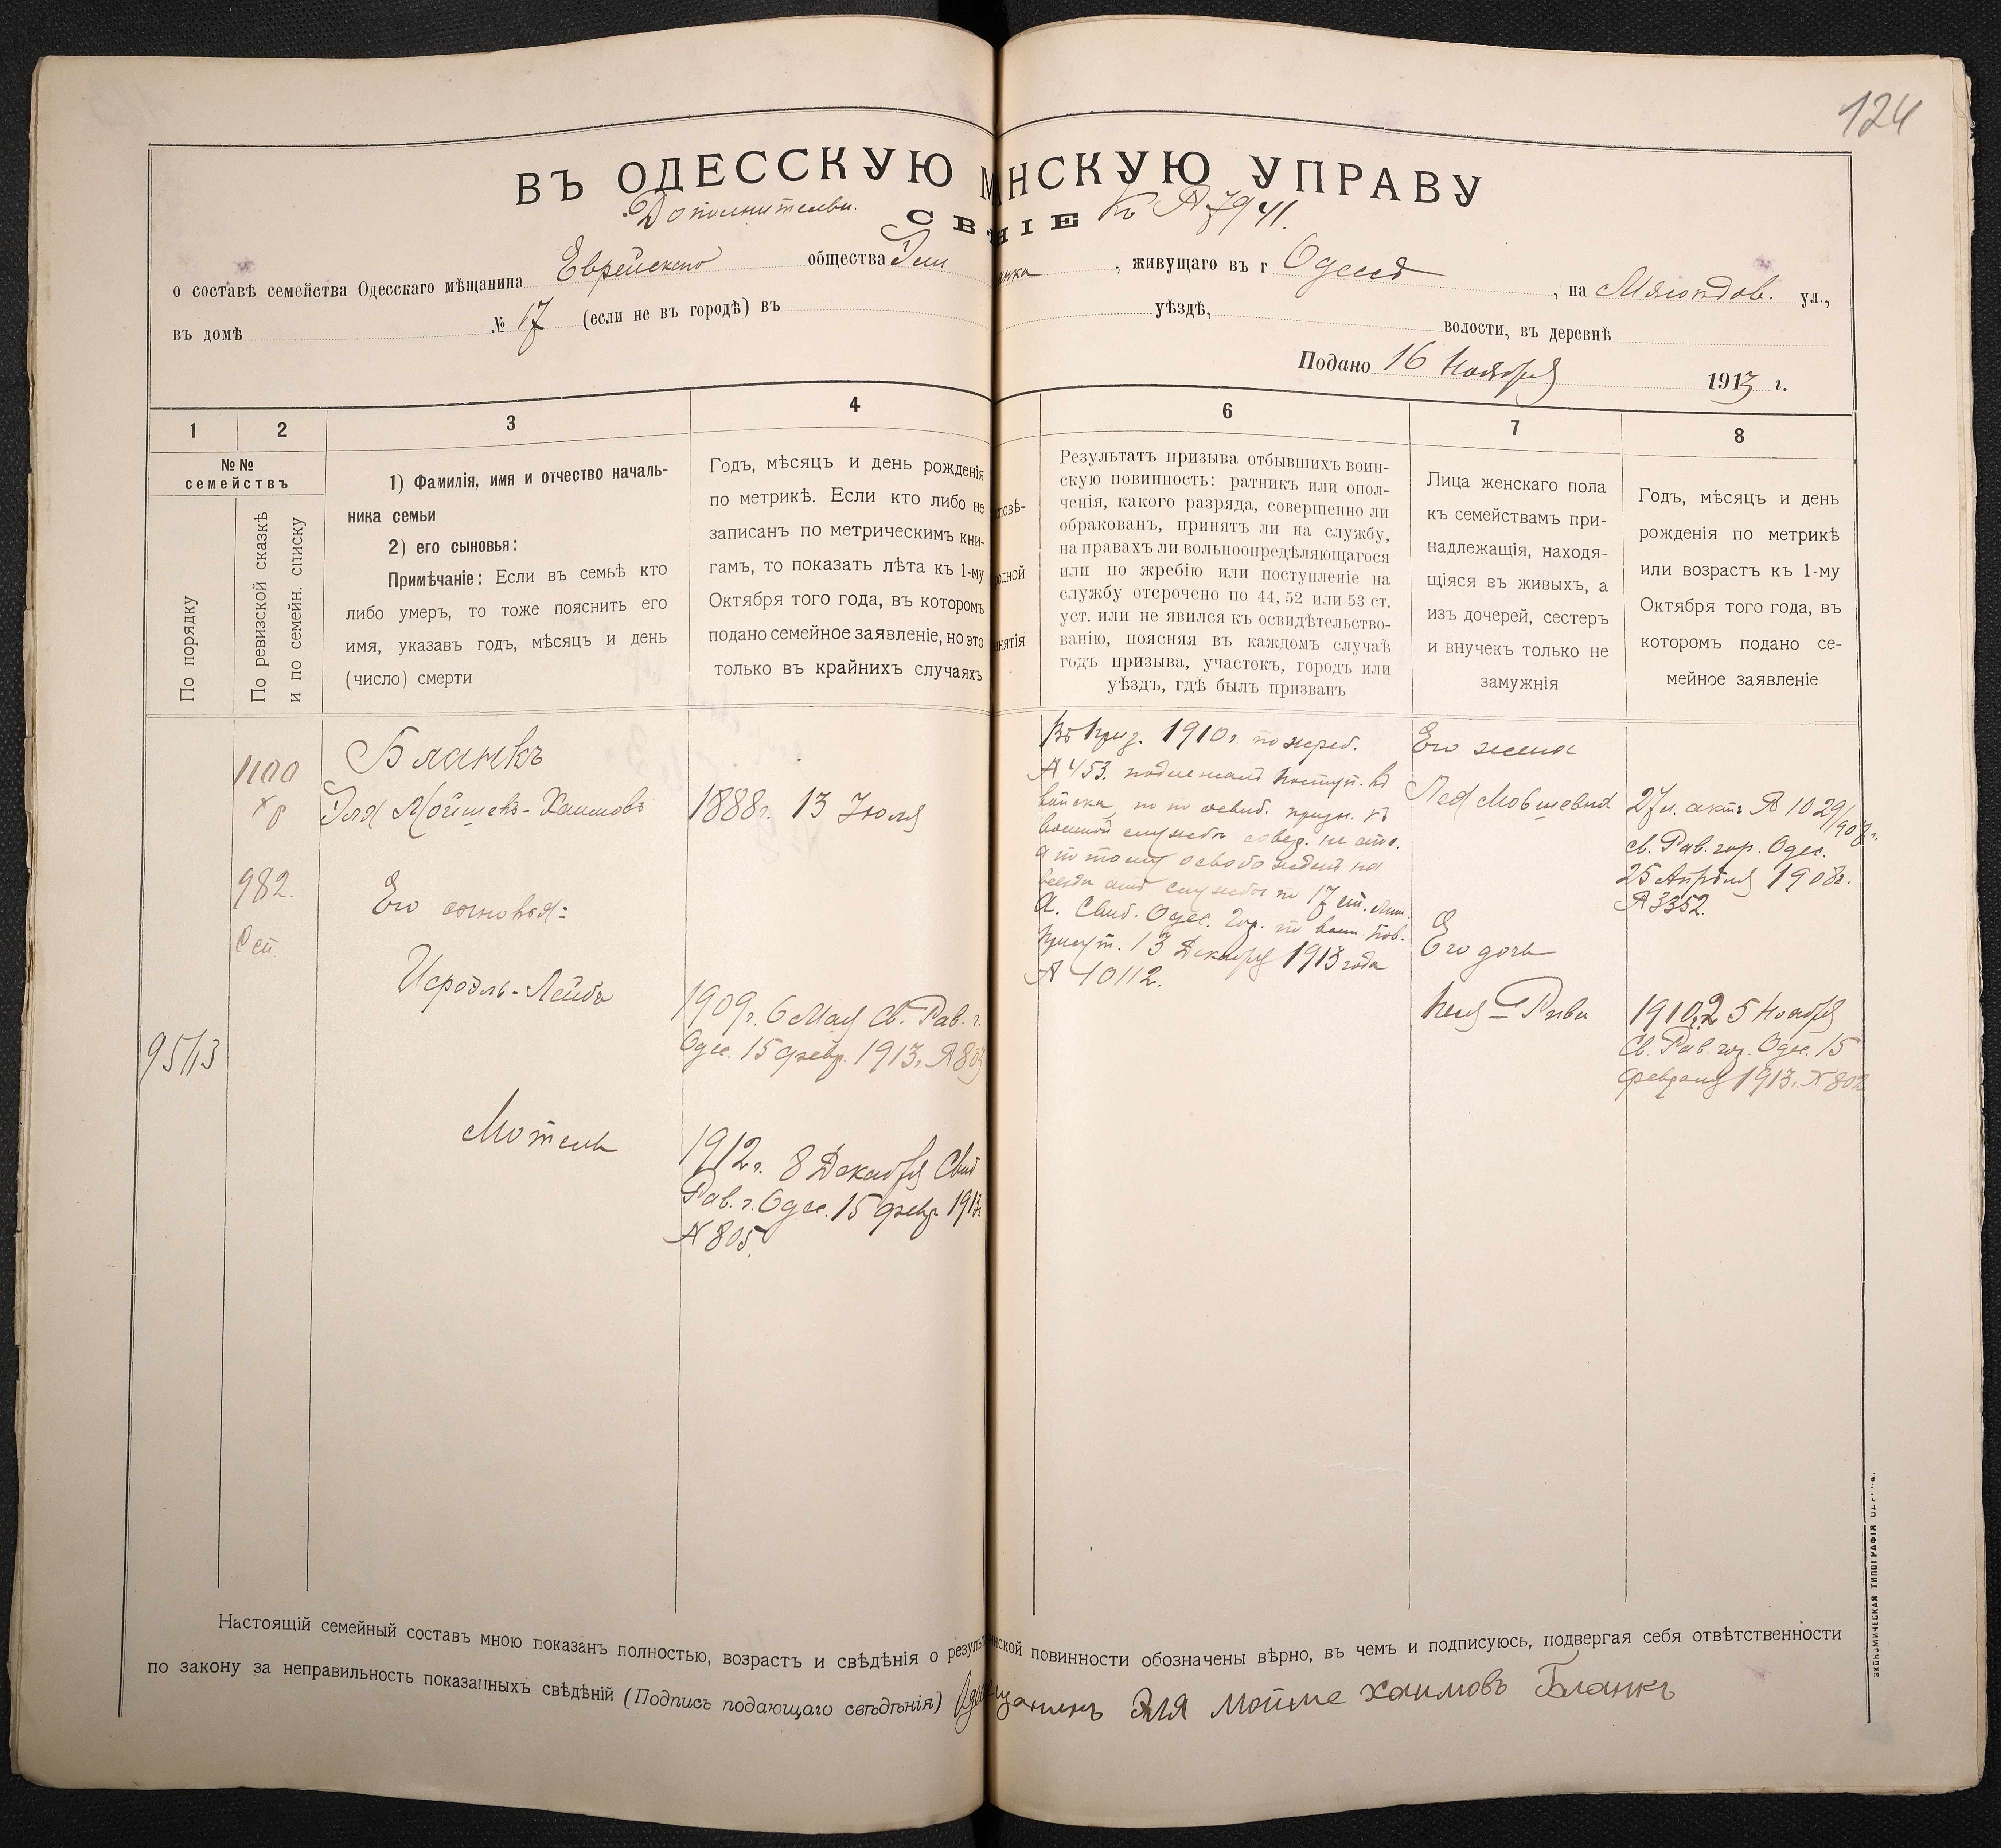 124
ВЪ ОДЕССКУЮ МѢНСКУЮ УПРАВУ
Дополнительн. СВ НІЕ Къ № 7941.
о составѣ семейства Одесскаго мѣщанина Еврейскаго общества Эли анка, живущаго въ г Одессѣ, на Мясоѣдов. ул.,
въ домѣ № 17 (если не въ городѣ) въ уѣздѣ, волости, въ деревнѣ
Подано 16 Ноября 1913 г.
1 2 3 4 6 7 8
№№ семействъ
По порядку
По ревизской сказкѣ
и по семейн. списку
1) Фамилія, имя и отчество началь-
ника семьи
2) его сыновья:
Примѣчаніе: Если въ семьѣ кто
либо умеръ, то тоже пояснить его
имя, указавъ годъ, мѣсяцъ и день
(число) смерти
Годъ, мѣсяцъ и день рожденія
по метрикѣ. Если кто либо не
записанъ по метрическимъ кни-
гамъ, то показать лѣта къ 1-му
Октября того года, въ которомъ
подано семейное заявленіе, но это
только въ крайнихъ случаяхъ
повѣ-
родной
анятія
Результатъ призыва отбывшихъ воин-
скую повинность: ратникъ или опол-
ченія, какого разряда, совершенно ли
обракованъ, принятъ ли на службу,
на правахъ ли вольноопредѣляющагося
или по жребію или поступленіе на
службу отсрочено по 44, 52 или 53 ст.
уст. или не явился къ освидѣтельство-
ванію, поясняя въ каждомъ случаѣ
годъ призыва, участокъ, городъ или
уѣздъ, гдѣ былъ призванъ
Лица женскаго пола
къ семействамъ при-
надлежащія, находя-
щіяся въ живыхъ, а
изъ дочерей, сестеръ
и внучекъ только не
замужнія
Годъ, мѣсяцъ и день
рожденія по метрикѣ
или возрастъ къ 1-му
Октября того года, въ
которомъ подано се-
мейное заявленіе
9513
1100
982
Бланкъ
Эля Мойшевъ-Хаимовъ
Его сыновья:
Исроэль-Лейбъ
Мотель
1888г. 13 Іюля
1909г. 6 Мая Св. Рав. г.
Одес. 15 февр. 1913г. № 803
1912г. 8 Декабря Свид
Рав. г. Одес. 15 февр 1913г
№ 805.
Въ приз. 1910г. по жреб.
№ 453. подлежалъ поступл. въ
войска, но по освид. призн. къ
военной службѣ совер. не спос.
а потому освобожденъ на
всегда отъ службы по 17 ст. лит.
А. Свид. Одес. Гор. по воин. пов.
Присут. 13 Декабря 1913 года
№ 10112.
Его жена
Лея Мовшевна
Его дочь
Песя-Рива
27 л. актъ № 1029/908 г.
св. Рав. гор. Одес.
25 Апрѣля 1908г.
№ 3352.
1910г. 25 Ноября
Св. Рав. гор. Одес. 15
февраля 1913г. № 802
Настоящій семейный составъ мною показанъ полностью, возрастъ и свѣдѣнія о резуль инской повинности обозначены вѣрно, въ чемъ и подписуюсь, подвергая себя отвѣтственности
по закону за неправильность показанныхъ свѣдѣній (Подпись подающаго свѣдѣнія) Одес щанинъ Эля Мойше Хаимовъ Бланкъ
ЭКОНОМИЧЕСКАЯ ТИПОГРАФІЯ ОДЕССА.